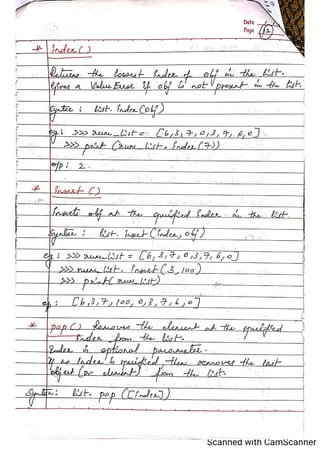 Date
Page 12
* Index ( )
Returns the lowest Index of obj in the list.
Gives a Value Error if obj is not present in the list.
Syntax : list. Index (obj)
eg : >>> num_list = [6,3,7,0,3,7,6,0]
>>> print (num_list. Index (7))
o/p : 2.
* Insert ( )
Inserts obj at the specified Index in the list
Syntax : list. Insert (Index, obj)
eg : >>> num_list = [6,3,7,0,3,7,6,0]
>>> num_list. Insert (3,100)
>>> print( num_list)
[6,3,7,100,0,3,7,6,0]
* pop ( ) Removes the element at the specified
Index from the list.
Index is optional parameter.
If no Index is specified then removes the last
object (or element) from the list.
Syntax : list. pop ([Index])
Scanned with CamScanner